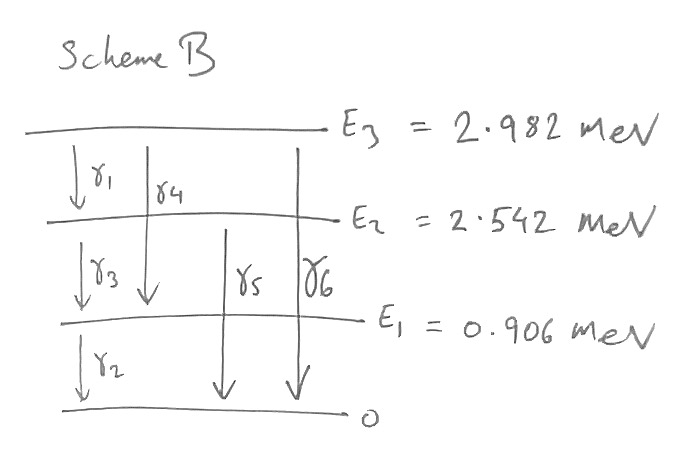 Scheme B
E₃ = 2.982 meV
γ₁ γ₄
E₂ = 2.542 meV
γ₃ γ₅ γ₆
E₁ = 0.906 meV
γ₂
0